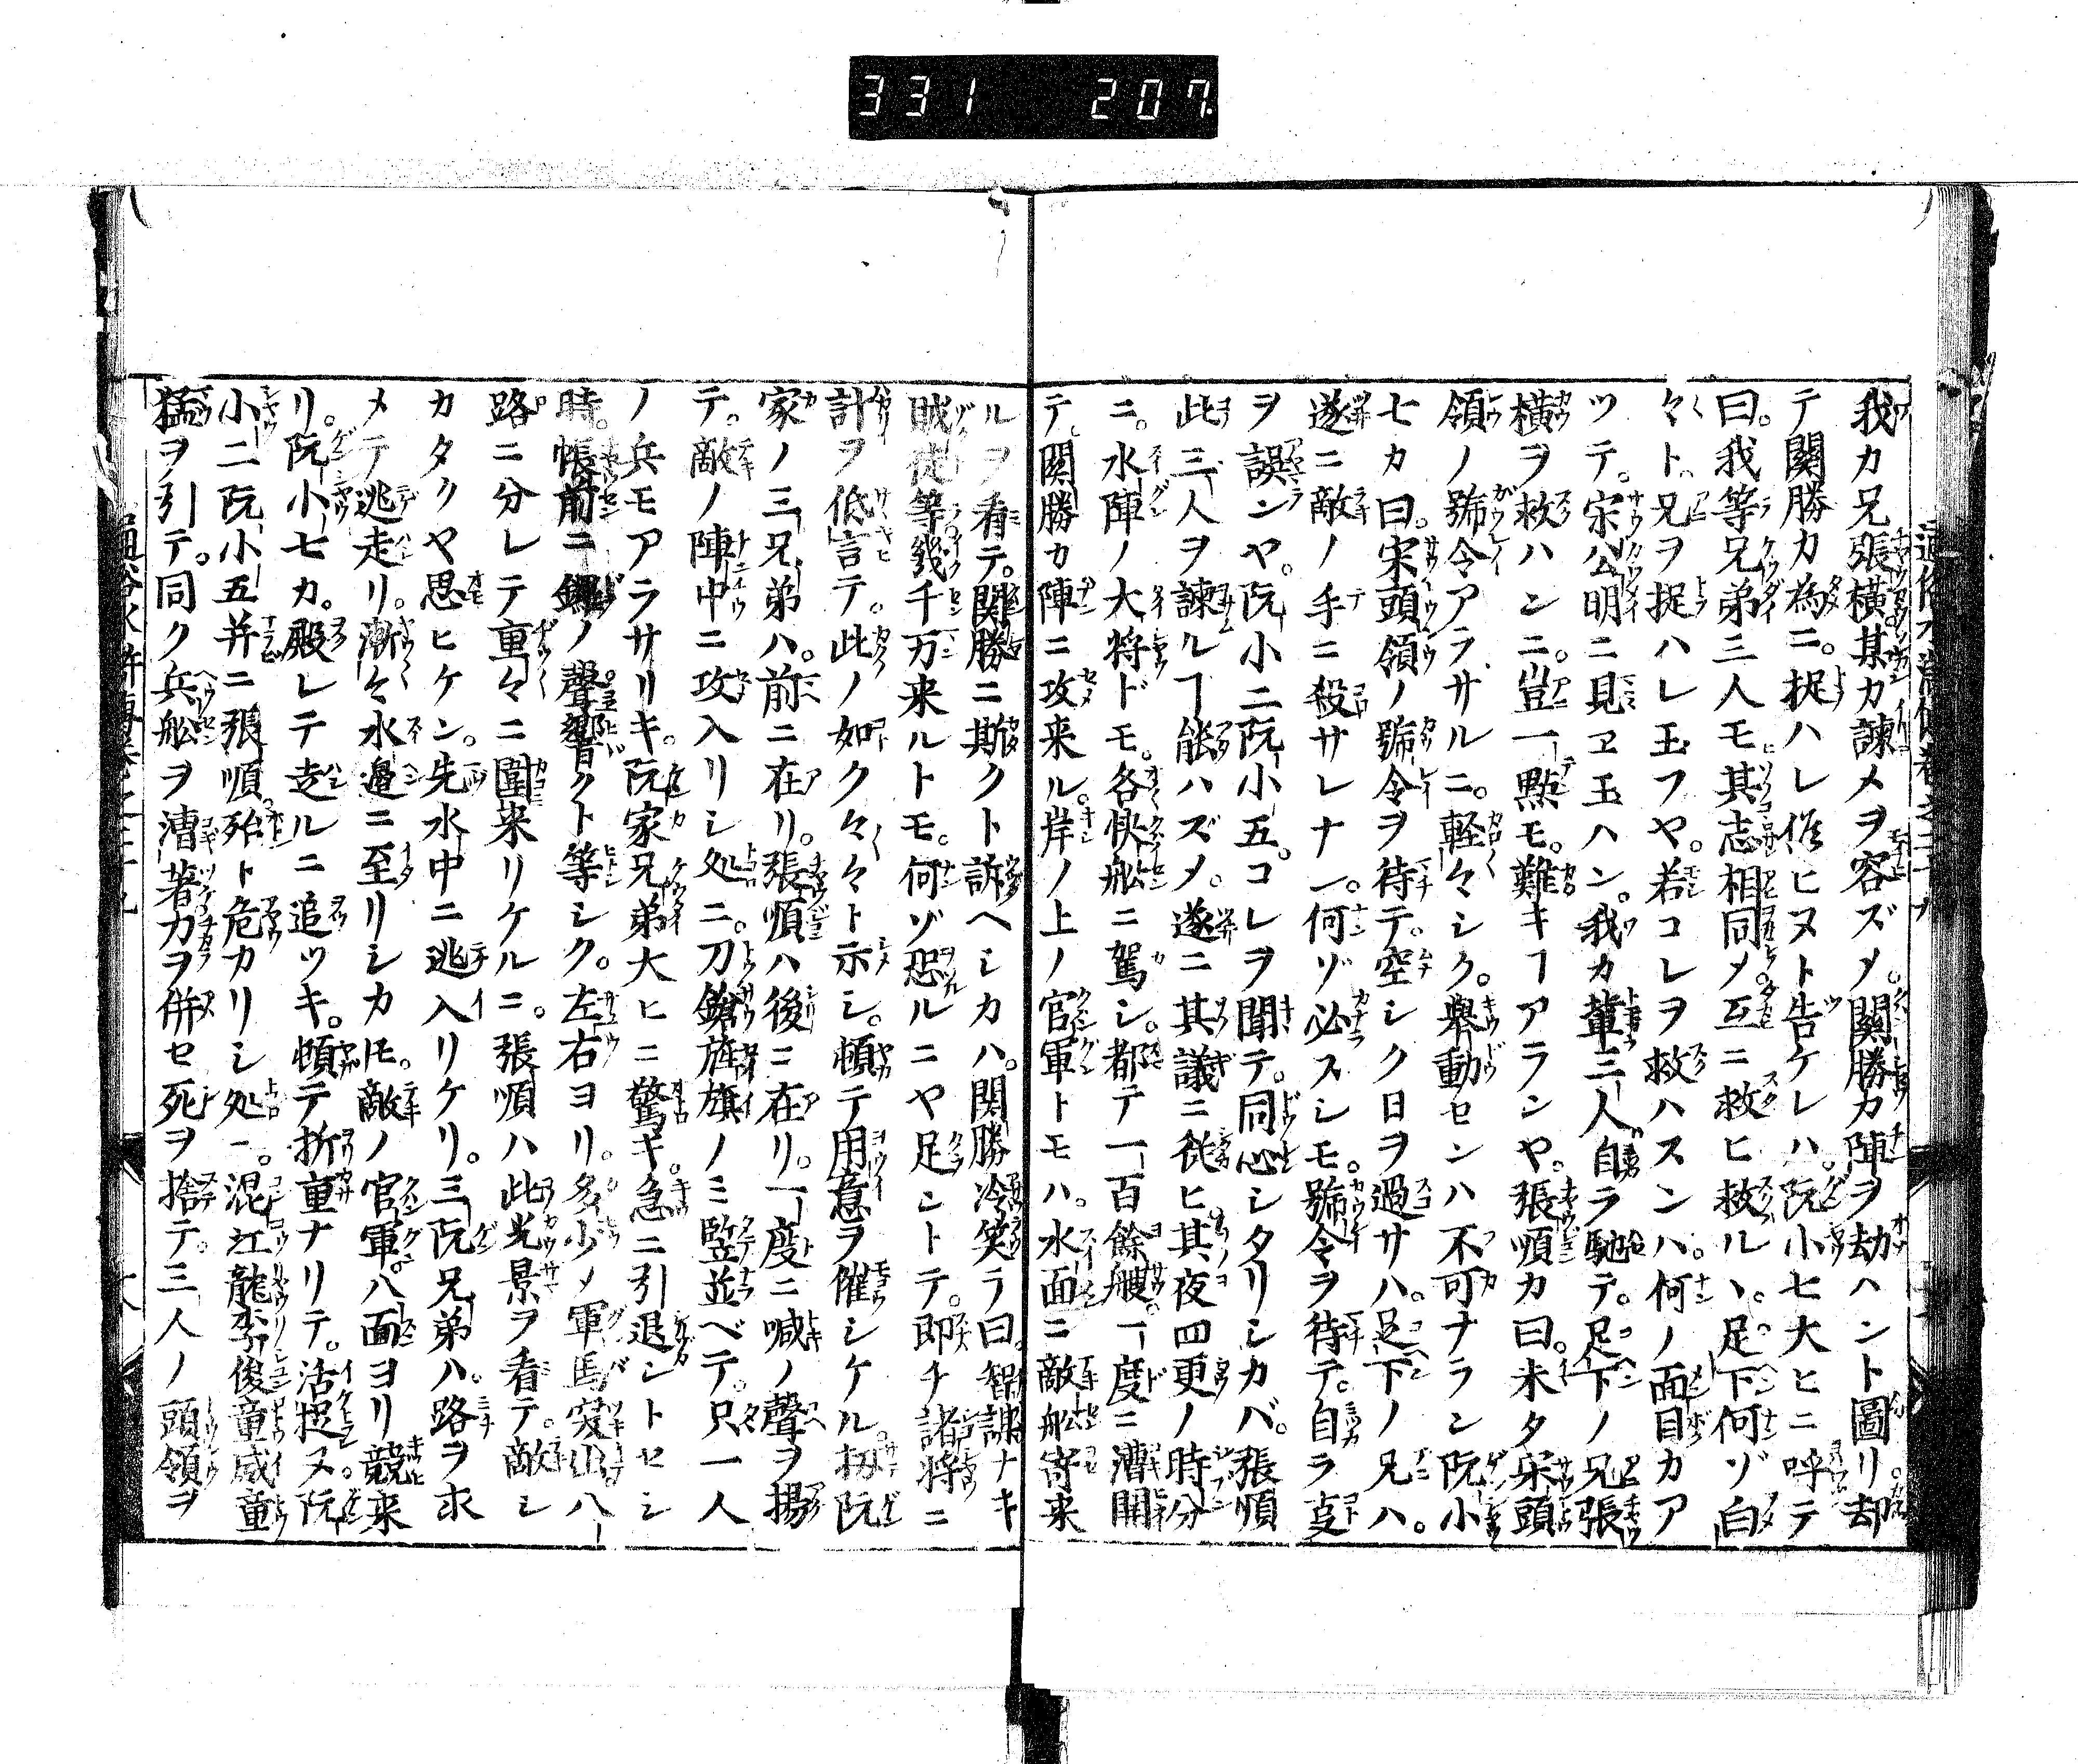 331 207
我カ兄張横某カ諫メヲ容ズメ。関勝カ陣ヲ劫ハント圖リ。却
テ関勝カ為ニ。捉ハレ候ヒヌト告ケレハ。阮小七大ヒニ呼テ
曰。我等兄弟三人モ其志相同メ互ニ救ヒ救ル丶。足下何ゾ白
々ト。兄ヲ捉ハレ玉フヤ。若コレヲ救ハスンハ。何ノ面目カア
ツテ。宋公明ニ見ヱ玉ハン。我カ輩三人自ラ馳テ。足下ノ兄張
横ヲ救ハンニ。豈一點モ。難キヿアランヤ。張順カ曰。未タ宋頭
領ノ號令アラサルニ。軽々シク。舉動センハ不可ナラン阮小
七カ曰。宋頭領ノ號令ヲ待テ。空シク日ヲ過サハ。足下ノ兄ハ。
遂ニ敵ノ手ニ殺サレナン。何ゾ必スシモ。號令ヲ待テ。自ラ㕝
ヲ誤ンヤ。阮小二阮小五。コレヲ聞テ。同心シタリシカバ。張順
此三人ヲ諫ルヿ能ハズメ。遂ニ其議ニ從ヒ。其夜四更ノ時分
ニ。水陣ノ大将ドモ。各快舩ニ駕シ。都テ一百餘艘。一度ニ漕開
テ。関勝カ陣ニ攻来ル。岸ノ上ノ官軍トモハ。水面ニ敵舩寄来
ルヲ看テ。関勝ニ斯クト訴ヘシカハ。関勝冷笑ラ曰。智謀ナキ
賊徒等。幾千万来ルトモ。何ゾ恐ルニヤ足ントテ。即チ諸将ニ
計ヲ低言テ。此ノ如ク々々ト示シ。頓テ用意ヲ催シケル。扨阮
家ノ三兄弟ハ。前ニ在リ。張順ハ後ニ在リ。一度ニ喊ノ聲ヲ揚
テ。敵ノ陣中ニ攻入リシ処ニ。刀鎗旌旗ノミ竪並ベテ。只一人
ノ兵モアラサリキ。阮家兄弟大ヒニ驚キ。急ニ引退ントセシ
時。帳前ニ鑼ノ聲響クト等シク。左右ヨリ。多少メ軍馬突出八
路ニ分レテ重々ニ圍来リケルニ。張順ハ此光景ヲ看テ。敵シ
カタクヤ思ヒケン。先水中ニ逃入リケリ。三阮兄弟ハ。路ヲ求
メテ逃走リ。漸々水邉ニ至リシカ𪜈。敵ノ官軍。八面ヨリ競来
リ。阮小七カ。殿レテ走ルニ追ツキ。頓テ折重ナリテ。活捉ヌ。阮
小二阮小五并ニ張順。殆ト危カリシ処ニ。混江龍李俊童威童
猛ヲ引テ。同ク兵舩ヲ漕著カヲ併セ死ヲ捨テ。三人ノ頭領ヲ